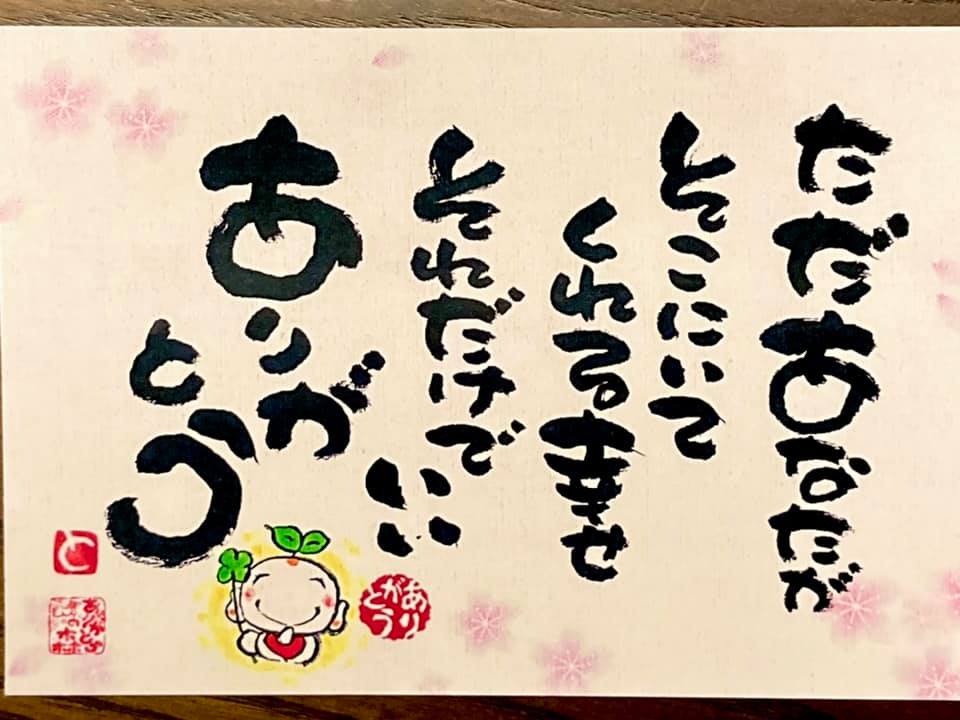 ただあなたが
そこにいて
くれる幸せ
それだけで
いい
ありが
とう
ありがとう
と